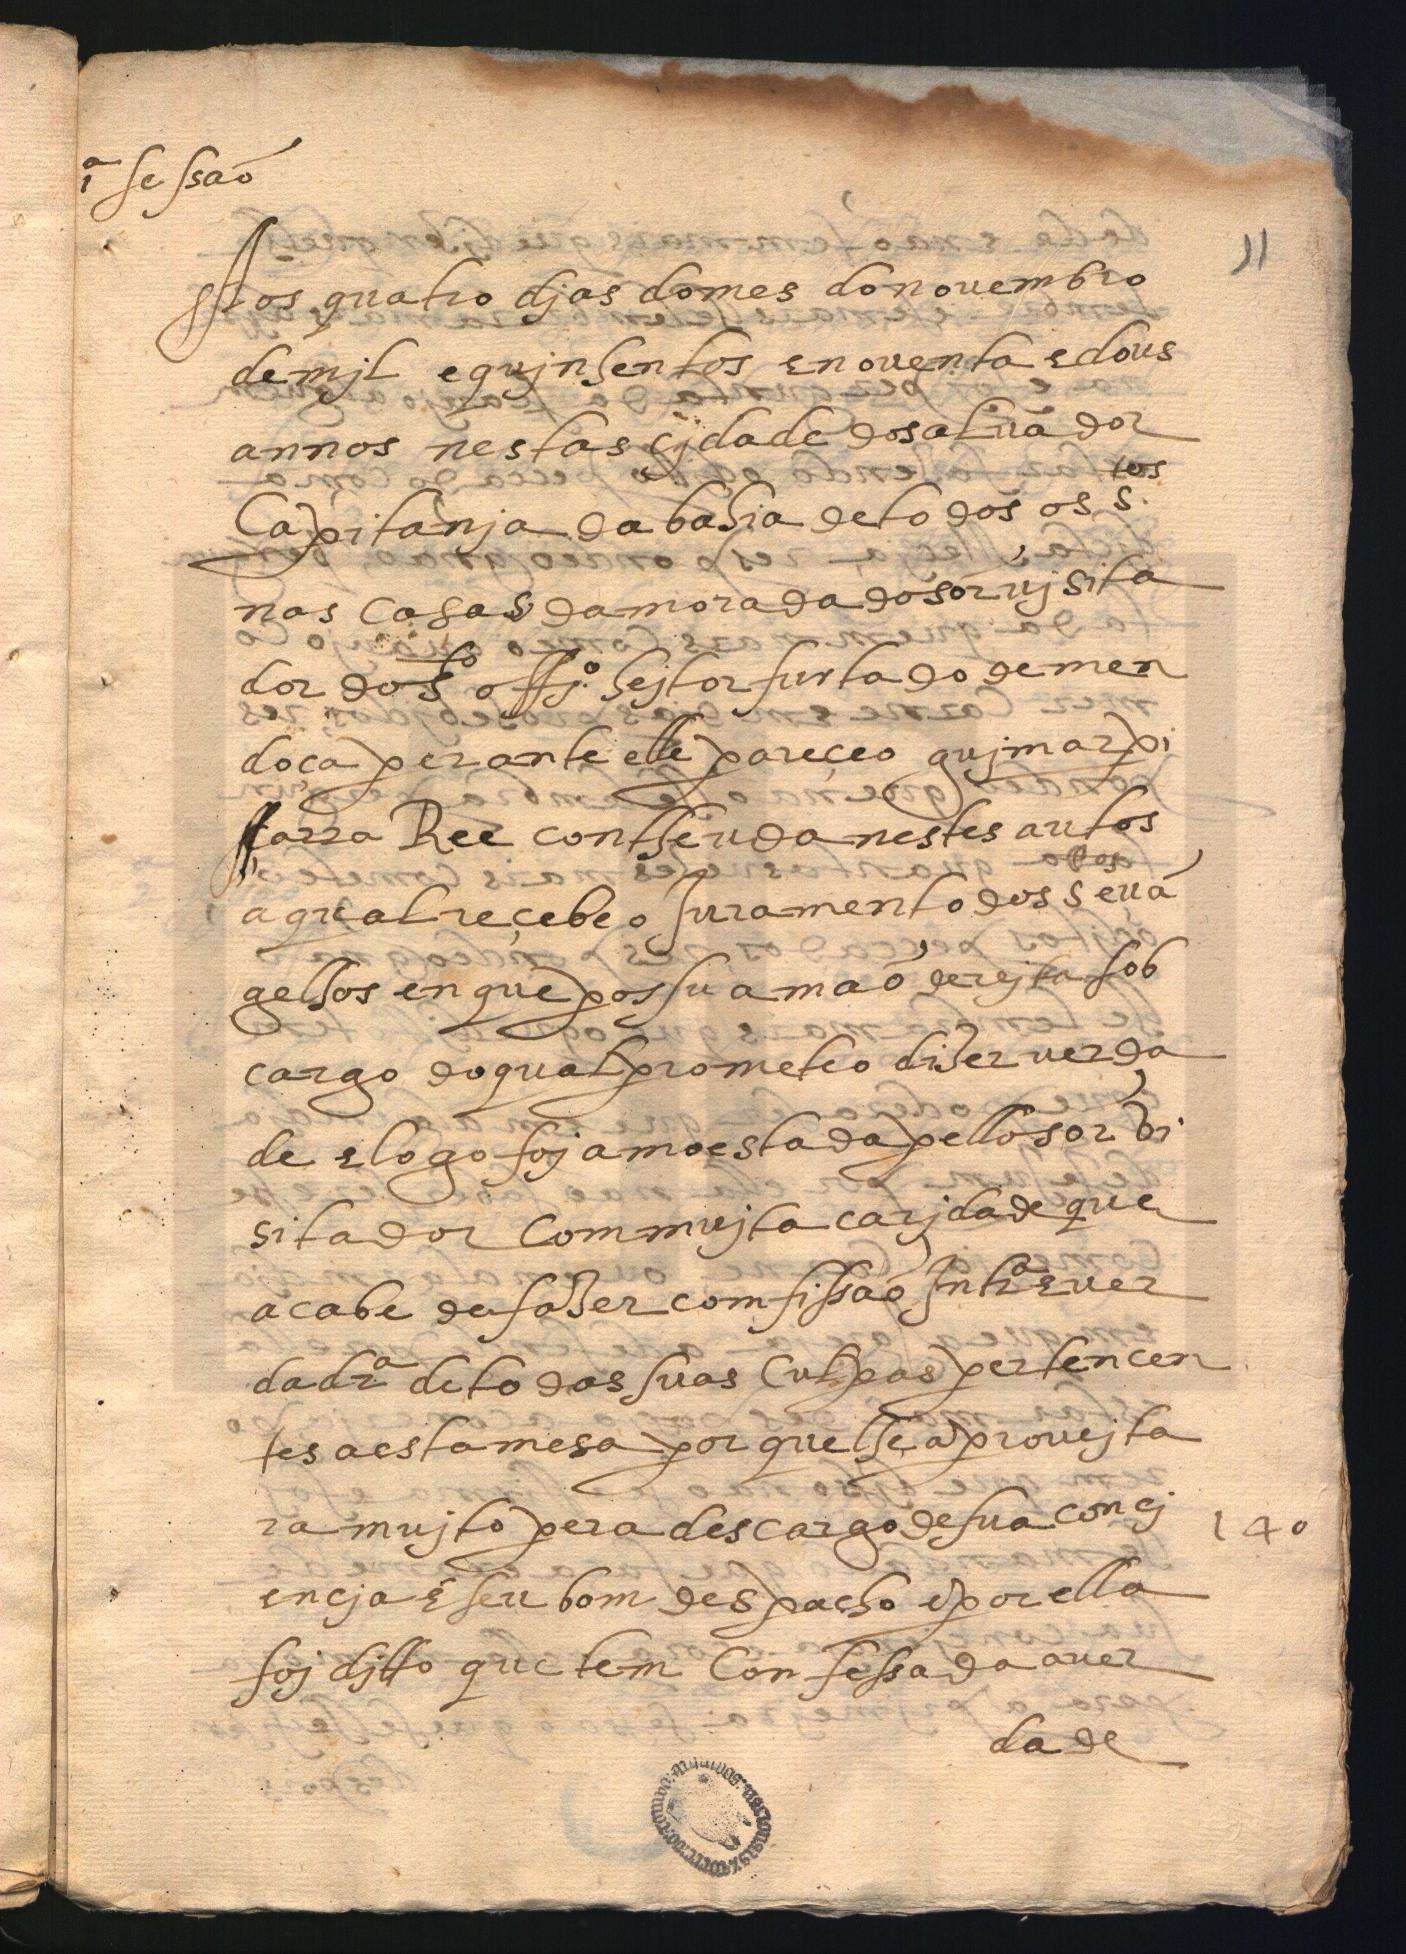 1ª sessaõ
11
Aos quatro djas do mes do novembro
de mjl e qujnhentos e noventa e dous
annos nestas çjdade do salvador
Capitanja da bahia de todos os s.tos
nas casas da morada do sor vjsita
dor do sto offj.o hejtor furtado de men
doça perante elle pareçeo gujmar pi
çarra Ree contheuda nestes autos
a qual reçebeo Juramento dos stos evã
gelhos en que pos su a maõ derejta sob
cargo do qual prometeo diser verda
de e logo foj amoestada pello sor vi
sitador com mujta carjdade que
acabe de faser comfissaõ Intrª e ver
dadrª de todas suas culpas pertencen
tes a esta mesa por que lhe aprovejta
ra mujto pera descargo de sua concj
encja e seu bom despacho e por ella
foj djtto que tem confessada a ver
dade